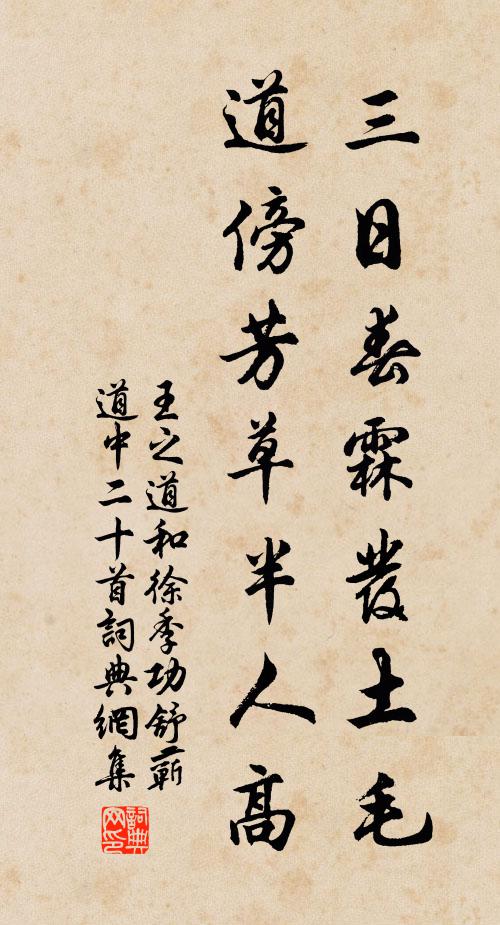 三日春霖發土毛
道傍芳草半人高
王之道和徐季功舒蘄
道中二十首詞典網集
詞典网印